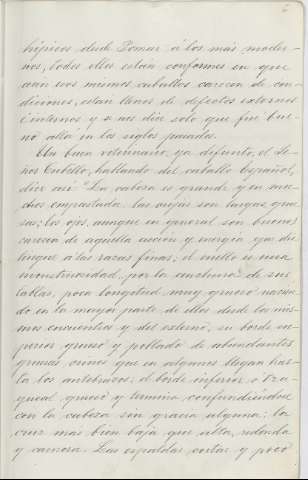 hípicos, desde Pomar á los mas moder-
nos, todos ellos estan conformes en que
aún esos mismos caballos carecen de con-
diciones, estan llenos de defectos externos
é internos y nos dice solo que fue bue-
no allá en los siglos pasados.
Un buen veterinario, ya difunto, el Se-
ñor Cubillo, hablando del caballo Español,
dice así "La cabeza es grande y en mu-
chos empastada, las orejas son largas, grue-
sas; los ojos, aunque en general son buenos
carecen de aquella accion y energía que dis-
tingue á las razas finas; el cuello es una
monstruosidad, por la anchura de sus
tablas, poca longitud, muy grueso nacien-
do en la mayor parte de ellos desde los mis-
mos encuentros y del externo, su borde su-
perior grueso y poblado de abundantes
gruesas crines que en algunos llegan has-
ta los antebrazos: el borde inferior ó tra-
queal grueso y termina confundiendose
con la cabeza sin gracia alguna: la
cruz mas bien baja que alta, redonda
y carnosa. Las espaldas cortas y poco